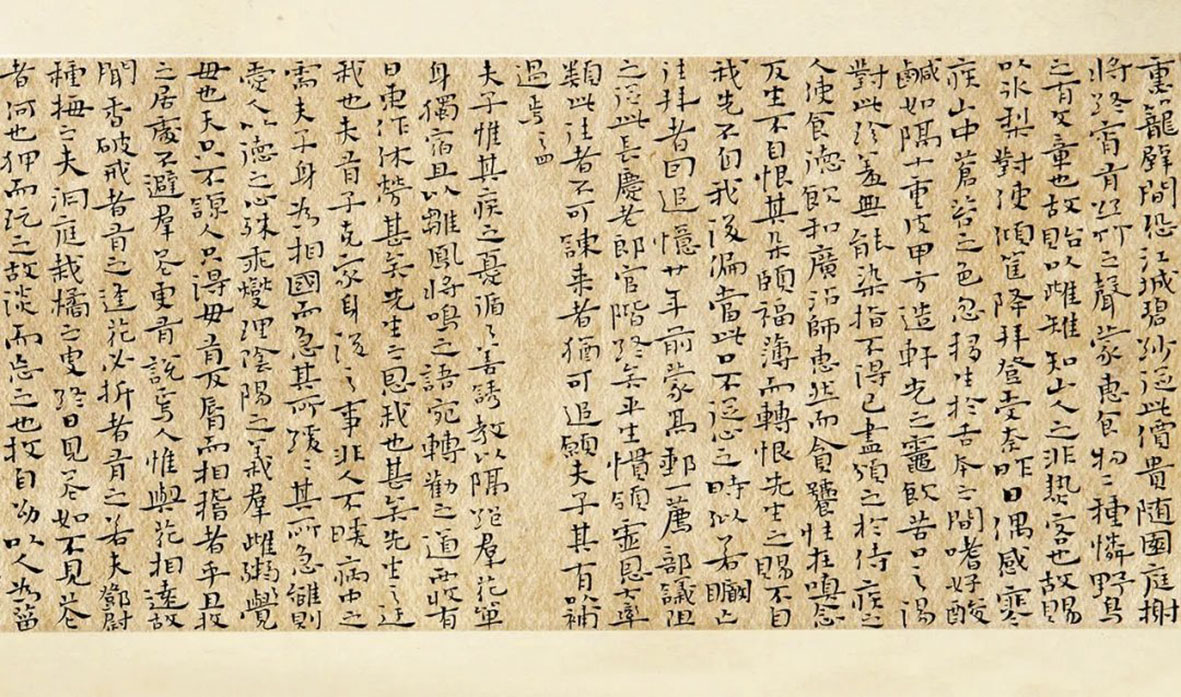 重籠壁間恐江城碧紗從此價貴隨園庭榭
將終宵有絲竹之聲蒙惠食物二種憐野鳥
之有文童也故貽以雌雉知山人之非熱客也故賜
以冰梨對使傾筐降拜登受奈昨日偶感寒
疾山中蒼苔之色忽移生於舌本之間嗜好酸
鹹如隔十重皮甲方造軒光之竈飲苦口之湯
對此珍羞無能染指不得已盡頒之於侍疾之
人使食德飲和廣沾師惠然而貪饕性在嗅念
反生不自恨其朵頤福薄而轉恨先生之賜不自
我先不自我後偏當此口不從心之時似若瞷亡
往拜者回追憶廿年前蒙高郵一薦部議阻
之從此長慶老郎官階終矣平生慣領靈恩大率
類此往者不可諫來者猶可追願夫子其有以補
過焉 四
夫子惟其疾之憂循循善誘教以隔絕群花單
身獨宿且以雛鳳將鳴之語宛轉勸之適西收有
日東作休勞甚矣先生之恩我也甚矣先生之迂
我也夫有子克家身後之事非人不暖病中之
需夫子身為相國而急其所緩緩其所急雖則
愛人以德之心殊乖燮理陰陽之義群雌粥粥覺
毋也天只不諒人只得毋有反唇而相稽者乎且枚
之居處不避群花更有說焉人惟與花相遠故
聞香破戒者有之逢花必折者有之若夫鄧尉
種梅之夫洞庭栽橘之叟終日見花如不見花
者何也狎而玩之故淡而忘之也枚自幼以人為菑